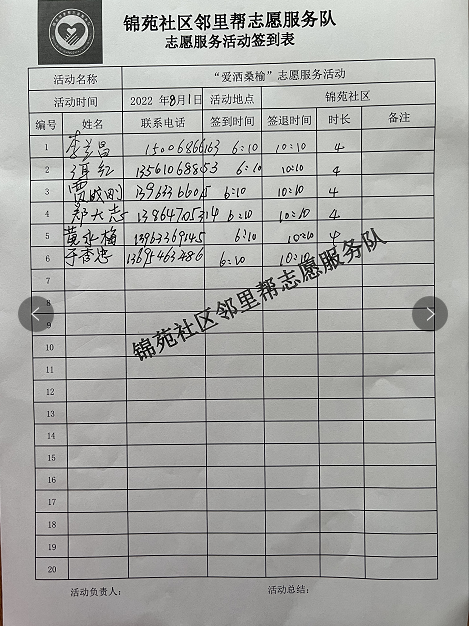 锦苑社区邻里帮志愿服务队
志愿服务活动签到表
活动名称 “爱洒桑榆”志愿服务活动
活动时间 2022 年8月1日 活动地点 锦苑社区
编号 姓名 联系电话 签到时间 签退时间 时长 备注
1 李兰昌 15006866163 6:10 10:10 4
2 13561068853 6:10 10:10 4
3 13963366015 6:10 10:10 4
4 郑大志 13864705314 6:10 10:10 4
5 黄永梅 13963369145 6:10 10:10 4
6 13695463286 6:10 10:10
7
8
锦苑社区邻里帮志愿服务队
9
10
11
12
13
14
15
16
17
18
19
20
活动负责人: 活动总结: